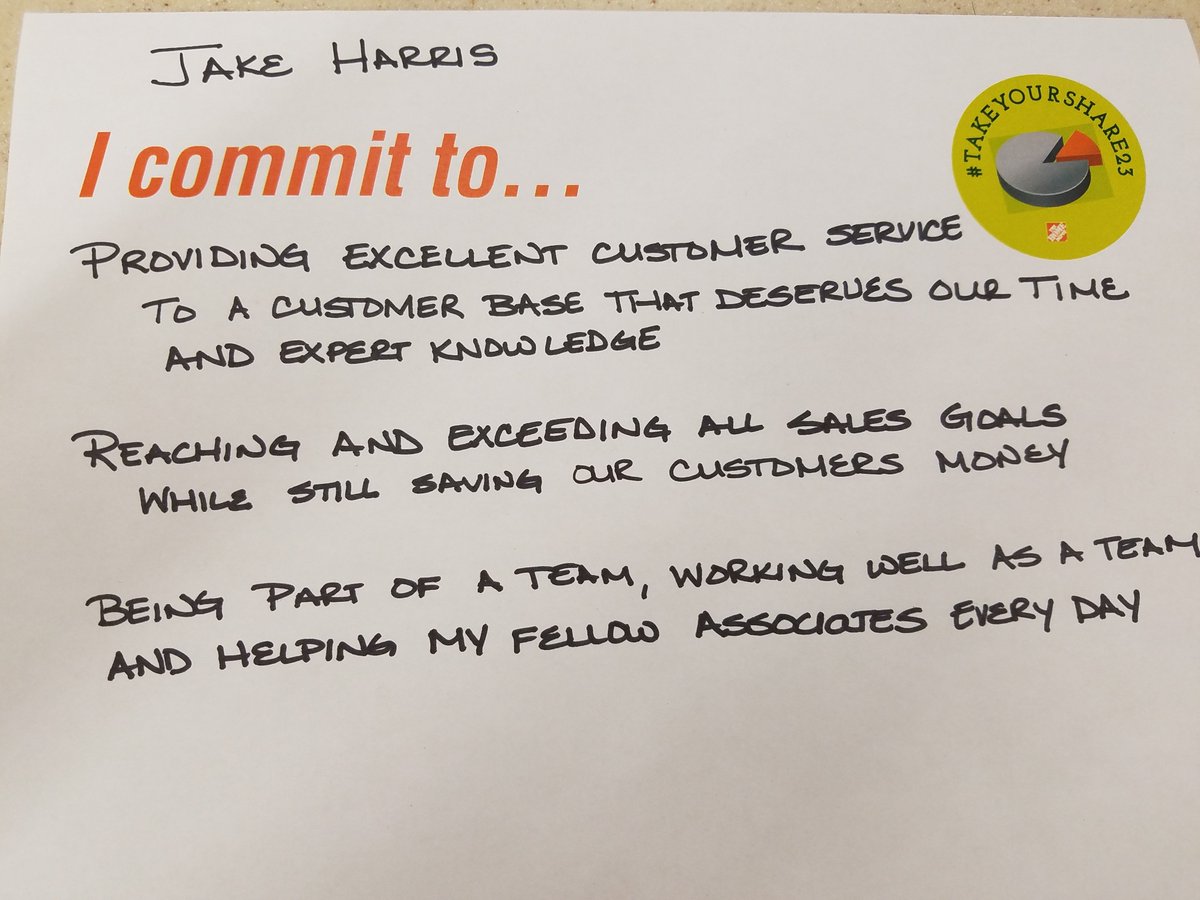 JAKE HARRIS
I commit to...
#TAKEYOURSHARE23
PROVIDING EXCELLENT CUSTOMER SERVICE
TO A CUSTOMER BASE THAT DESERVES OUR TIME
AND EXPERT KNOWLEDGE
REACHING AND EXCEEDING ALL SALES GOALS
WHILE STILL SAVING OUR CUSTOMERS MONEY
BEING PART OF A TEAM, WORKING WELL AS A TEAM
AND HELPING MY FELLOW ASSOCIATES EVERY DAY